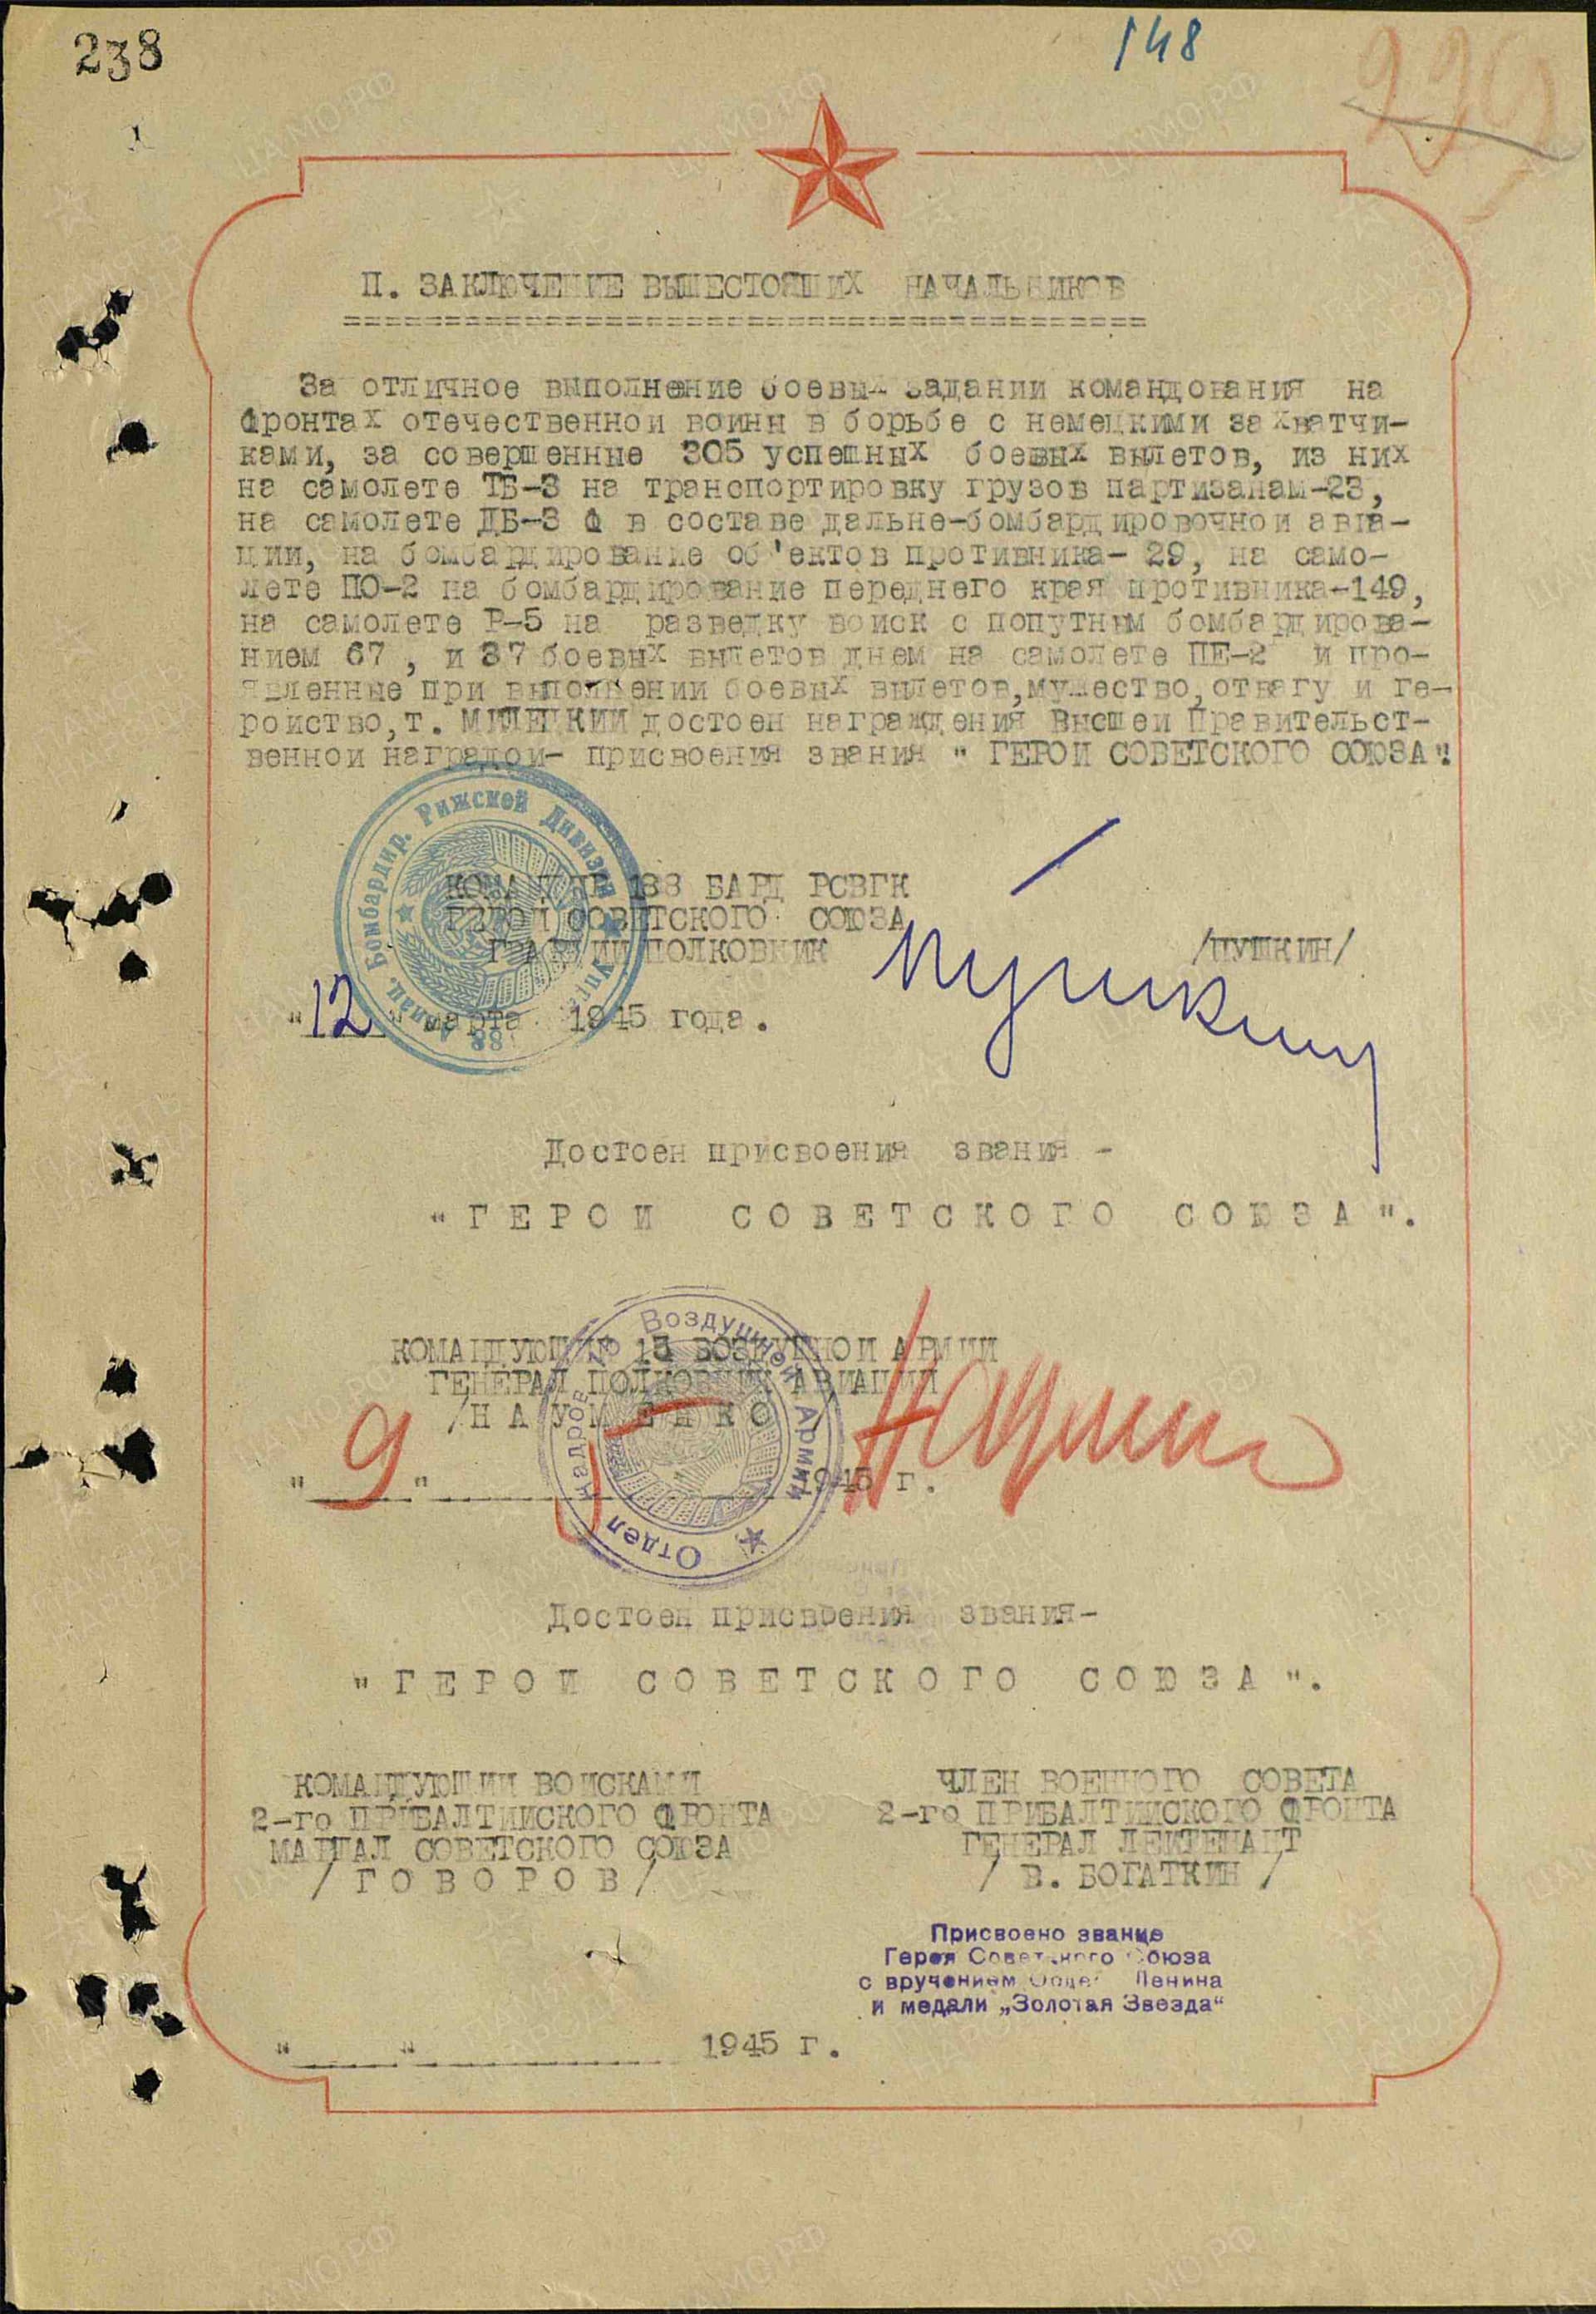 238
148
П. ЗАКЛЮЧЕНИЕ ВЫШЕСТОЯЩИХ НАЧАЛЬНИКОВ
За отличное выполнение боевых задании командования на
фронтах отечественнои воины в борьбе с немецкими захватчи-
ками, за совершенные 305 успешных боевых вылетов, из них
на самолете ТБ-3 на транспортировку грузов партизанам-23,
на самолете ДБ-3 Ф в составе дальне-бомбардировочнои авиа-
ции, на бомбардирование об'ектов противника- 29, на само-
лете ПО-2 на бомбардирование переднего края противника-149,
на самолете Р-5 на разведку воиск с попутным бомбардирова-
нием 67, и 37 боевых вылетов днем на самолете ПЕ-2 и про-
явленные при выполнении боевых вылетов, мужество, отвагу и ге-
роиство, т. МИЛЕЦКИИ достоен награждения Высшеи Правительст-
веннои наградои- присвоения звания " ГЕРОИ СОВЕТСКОГО СОЮЗА".
КОМАНДИР 188 БАРД РСВГК
ГЕРОИ СОВЕТСКОГО СОЮЗА
ГВАРДИИ ПОЛКОВНИК /ПУШКИН/
Пушкин
"12" марта 1945 года.
Авиац. Бомбардир. Рижской Дивизии
188
Достоен присвоения звания -
"ГЕРОИ СОВЕТСКОГО СОЮЗА".
КОМАНДУЮЩИИ 15 ВОЗДУШНОИ АРМИИ
ГЕНЕРАЛ ПОЛКОВНИК АВИАЦИИ
/НАУМЕНКО/
"9" 1945 г.
Отдел кадров 15 Воздушной Армии
Достоен присвоения звания-
"ГЕРОИ СОВЕТСКОГО СОЮЗА".
КОМАНДУЮЩИИ ВОИСКАМИ ЧЛЕН ВОЕННОГО СОВЕТА
2-го ПРИБАЛТИИСКОГО ФРОНТА 2-го ПРИБАЛТИИСКОГО ФРОНТА
МАРШАЛ СОВЕТСКОГО СОЮЗА ГЕНЕРАЛ ЛЕИТЕНАНТ
/ГОВОРОВ/ / В. БОГАТКИН /
Присвоено звание
Героя Советского Союза
с вручением Ордена Ленина
и медали „Золотая Звезда“
" " 1945 г.